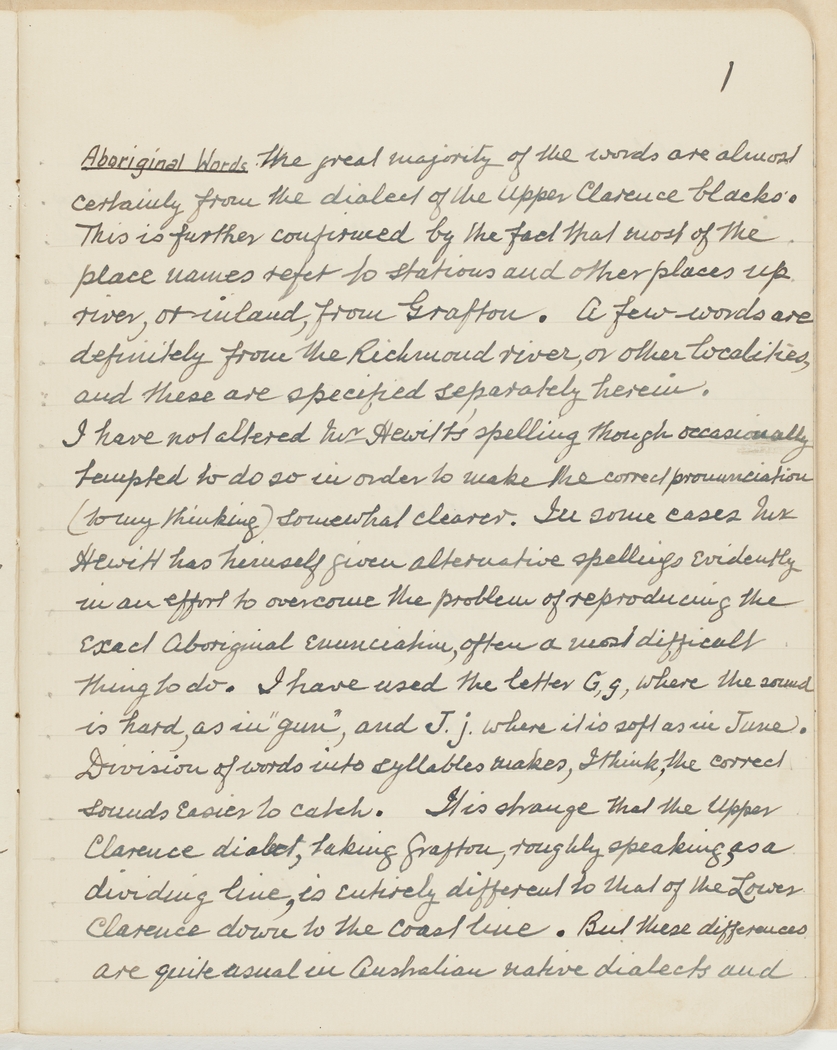 1
Aboriginal Words. The great majority of the words are almost
certainly from the dialect of the Upper Clarence blacks.
This is further confirmed by the fact that most of the
place names refer to stations and other places up
river, or inland, from Grafton. A few words are
definitely from the Richmond river, or other localities,
and these are specified separately herein.
I have not altered Mr Hewitt's spelling though occasionally
tempted to do so in order to make the correct pronunciation
(to my thinking) somewhat clearer. In some cases Mr
Hewitt has himself given alternative spellings evidently
in an effort to overcome the problem of reproducing the
Exact Aboriginal Enunciation, often a most difficult
thing to do. I have used the letter G, g, where the sound
is hard, as in "gun", and J. j. where it is soft as in June).
Division of words into syllables makes, I think, the correct
sounds Easier to catch. It is strange that the Upper
Clarence dialect, taking Grafton, roughly speaking, as a
dividing line, is entirely different to that of the Lower
Clarence down to the coast line. But these differences
are quite usual in Australian native dialects and